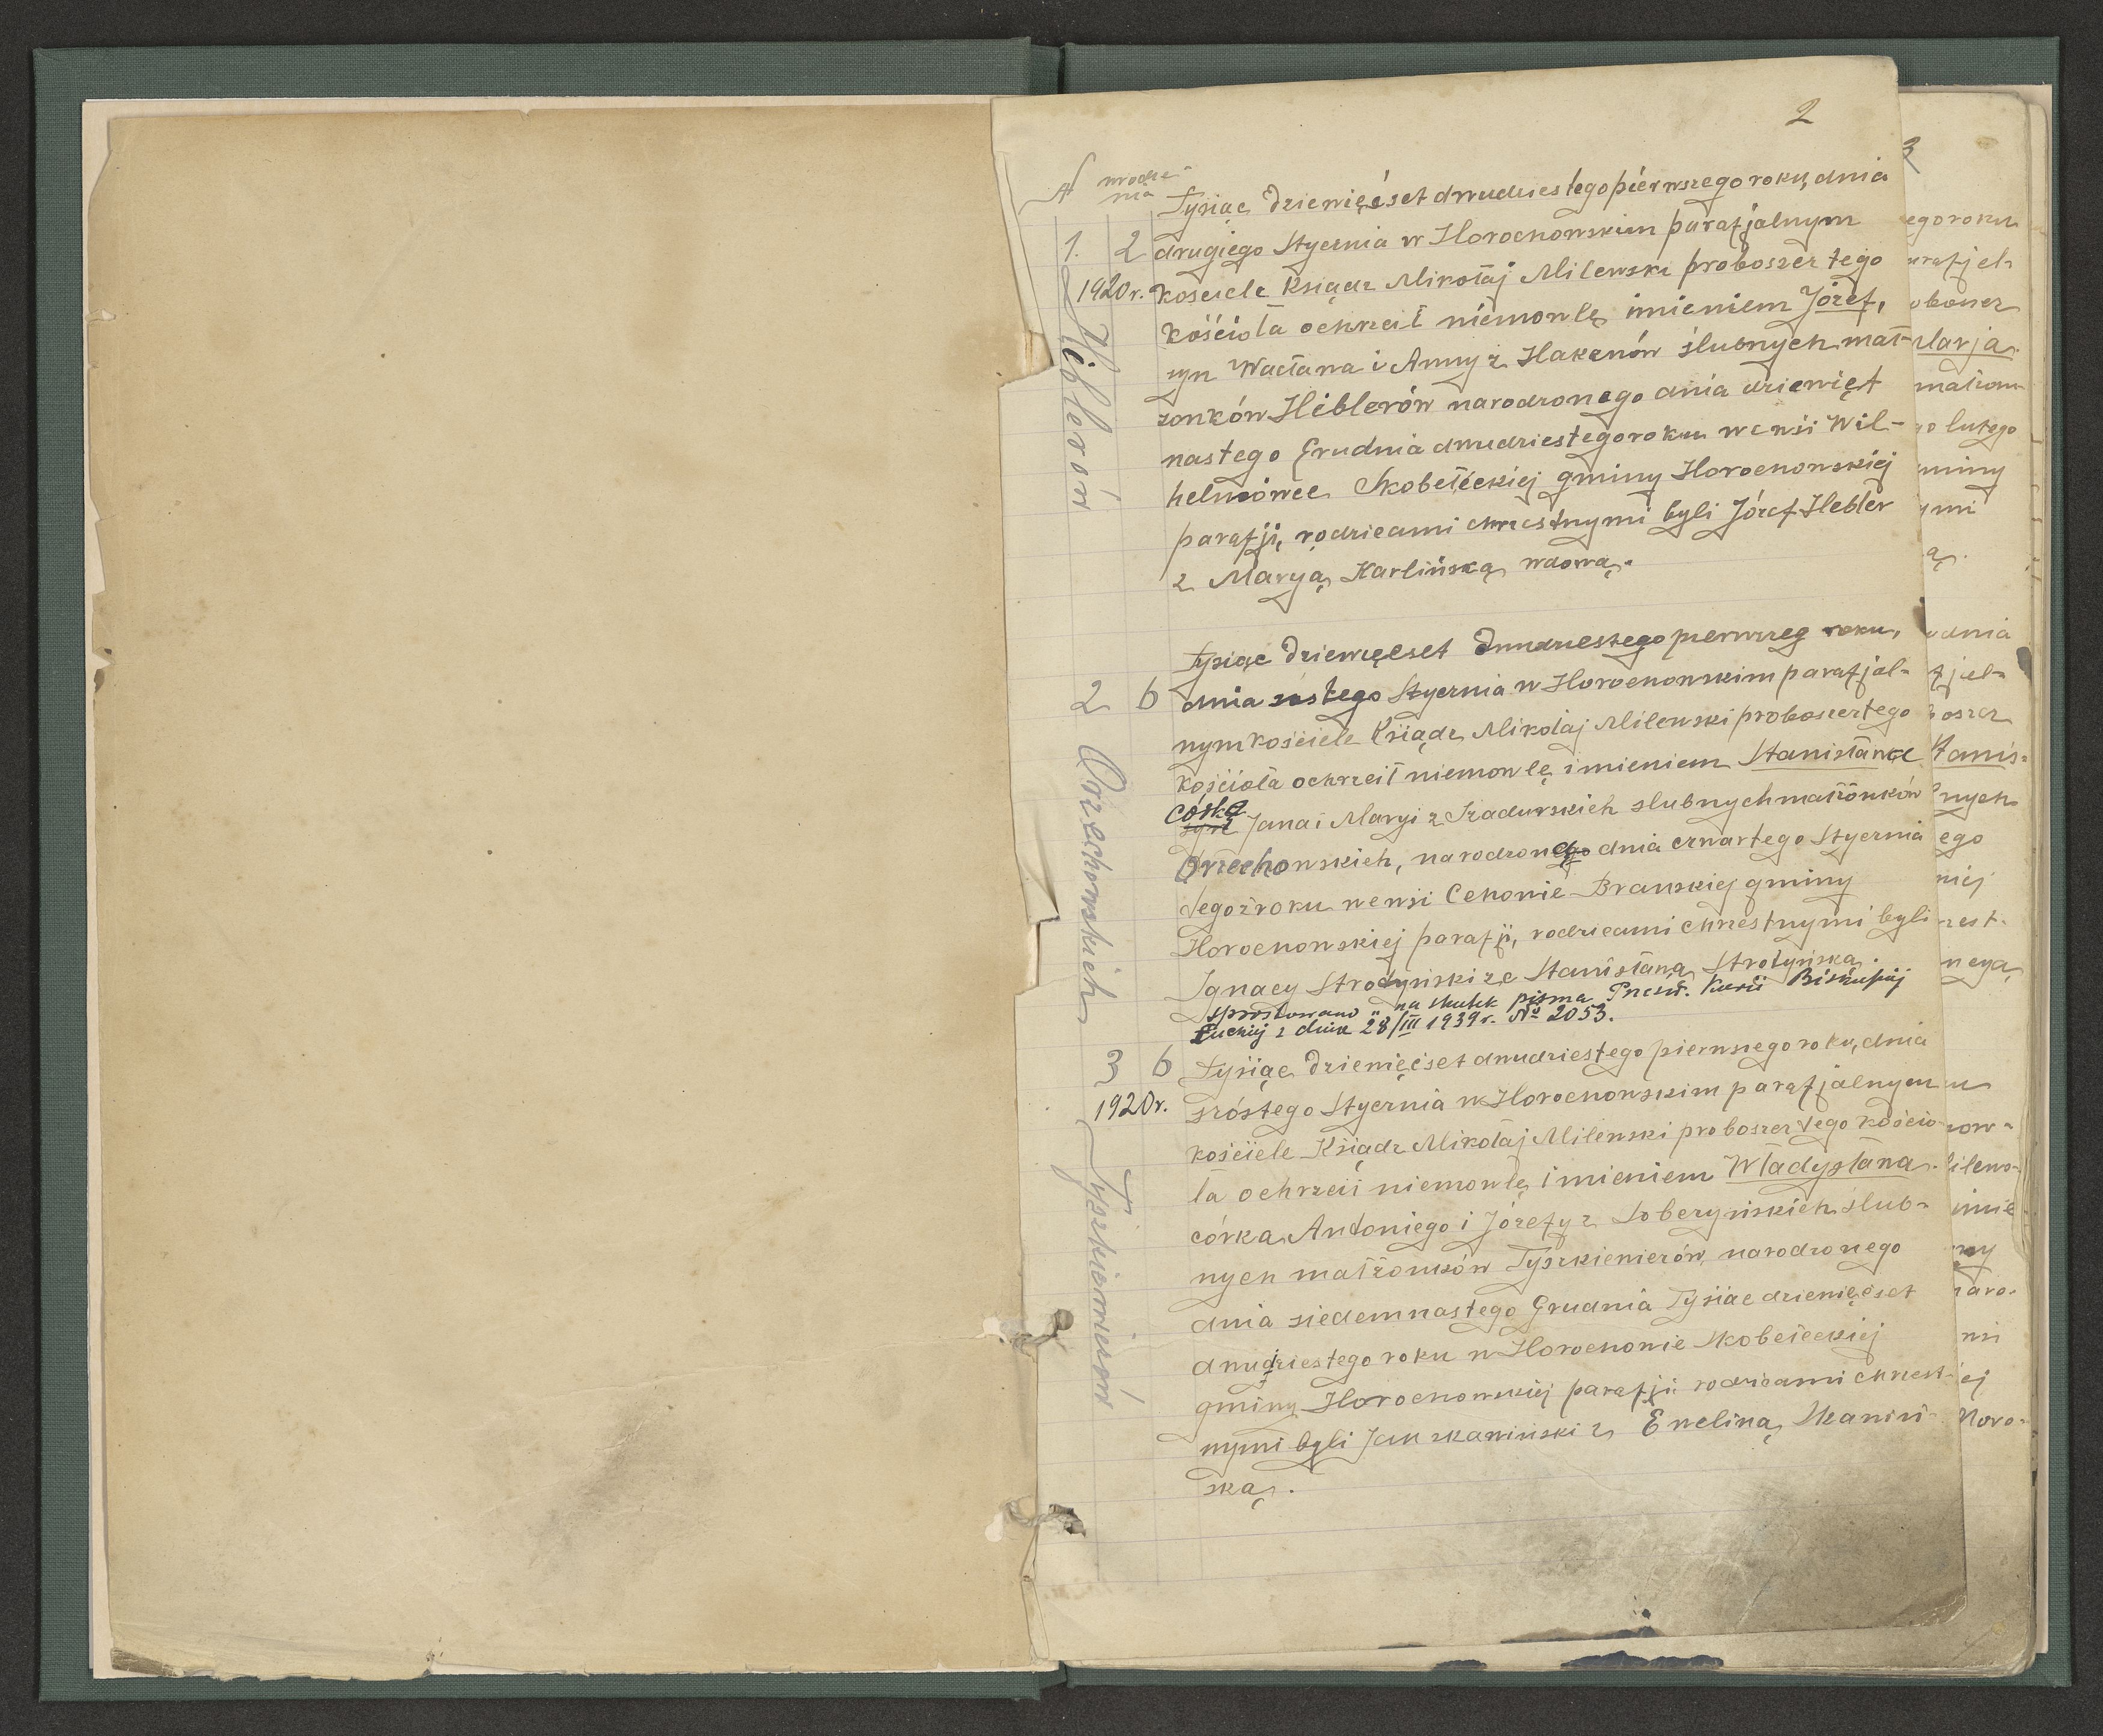 2
N urodze-
nia
Tysiąc dziewięćset dwudziestego pierwszego roku, dnia
1. 2 drugiego Stycznia w Horochowskim parafjalnym
1920 r. kosciele Ksiądz Mikołaj Milewski proboszcz tego
kościoła ochrzcił niemowlę imieniem Józef,
syn Wacława i Anny z Hakenów ślubnych mał-
żonków Heblerów narodzonego dnia dziewięt
nastego Grudnia dwudziestego roku we wsi Wil-
helmówce Skobełeckiej gminy Horochowskiej
parafji, rodzicami chrzestnymi byli Józef Hebler
z Maryą Karlińską wdową.
Heblerów
Tysiąc dziewięcset dwudziestego pierwszeg roku,
2 6 dnia szóstego Stycznia w Horochowskim parafjal-
nym kościele Ksiądz Mikołaj Milewski proboszcz tego
kościoła ochrzcił niemowlę imieniem Stanisława
córka
syn Jana i Maryi z Szadurskich slubnych małżonków
Orzechowskich, narodzonego dnia czwartego Stycznia
tegoż roku we wsi Cehowie Branskiej gminy
Horochowskiej parafji, rodzicami chrzestnymi byli
Ignacy Strodynski ze Stanisławą Strożyńską.
sprostowano na skutek pisma Przesw. Kurii Biskupiej
Łuckiej z dnia 28/III 1939 r. No 2053.
Orzechowskich
3 6 Tysiąc dziewięćset dwudziestego pierwszego roku, dnia
1920 r. szóstego Stycznia w Horochowskim parafjalnym
kościele Ksiądz Mikołaj Milewski proboszcz tego kościo
ła ochrzcił niemowlę imieniem Władysława.
córka Antoniego i Józefy z Soberyńskich ślub-
nych małżonków Tyszkiewiczów, narodzonego
dnia siedemnastego Grudnia Tysiąc dziewięćset
dwudziestego roku w Horochowie Skobełeckiej
gminy Horochowskiej parafji rodzicami chrzest-
nymi byli Jan Skawiński z Eweliną Skawiń-
ską.
Tyszkiewiczów
3
ego roku
arafjel-
oboszcz
Marja
małżon-
go lutego
gminy
ymi
ą.
dnia
fjel-
boszcz
Stanis-
nych
ego
niej
rzest-
ncyą